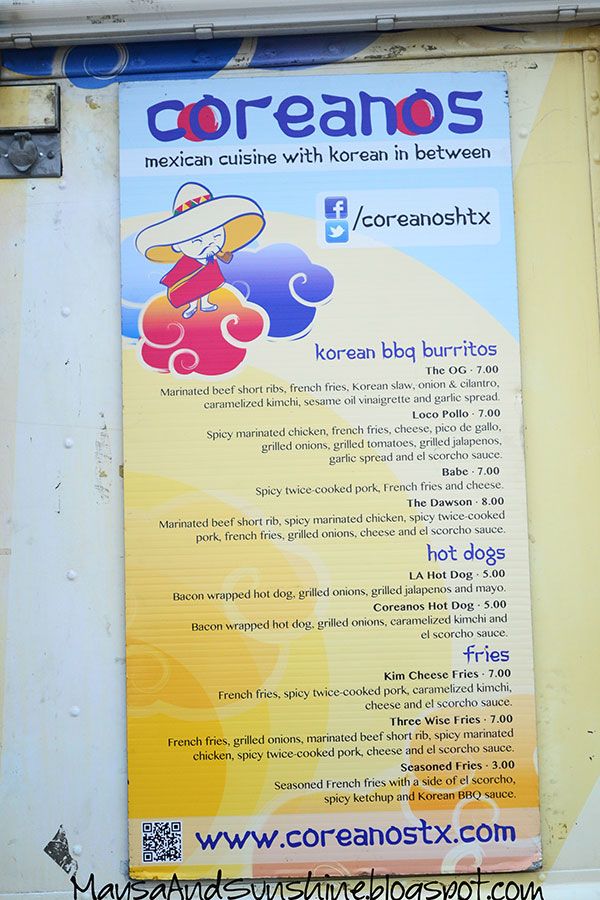 coreanos
mexican cuisine with korean in between
/coreanoshtx
korean bbq burritos
The OG · 7.00
Marinated beef short ribs, french fries, Korean slaw, onion & cilantro,
caramelized kimchi, sesame oil vinaigrette and garlic spread.
Loco Pollo · 7.00
Spicy marinated chicken, french fries, cheese, pico de gallo,
grilled onions, grilled tomatoes, grilled jalapenos,
garlic spread and el scorcho sauce.
Babe · 7.00
Spicy twice-cooked pork, French fries and cheese.
The Dawson · 8.00
Marinated beef short rib, spicy marinated chicken, spicy twice-cooked
pork, french fries, grilled onions, cheese and el scorcho sauce.
hot dogs
LA Hot Dog · 5.00
Bacon wrapped hot dog, grilled onions, grilled jalapenos and mayo.
Coreanos Hot Dog · 5.00
Bacon wrapped hot dog, grilled onions, caramelized kimchi and
el scorcho sauce.
fries
Kim Cheese Fries · 7.00
French fries, spicy twice-cooked pork, caramelized kimchi,
cheese and el scorcho sauce.
Three Wise Fries · 7.00
French fries, grilled onions, marinated beef short rib, spicy marinated
chicken, spicy twice-cooked pork, cheese and el scorcho sauce.
Seasoned Fries · 3.00
Seasoned French fries with a side of el scorcho,
spicy ketchup and Korean BBQ sauce.
www.coreanostx.com
MaysaAndSunshine.blogspot.com